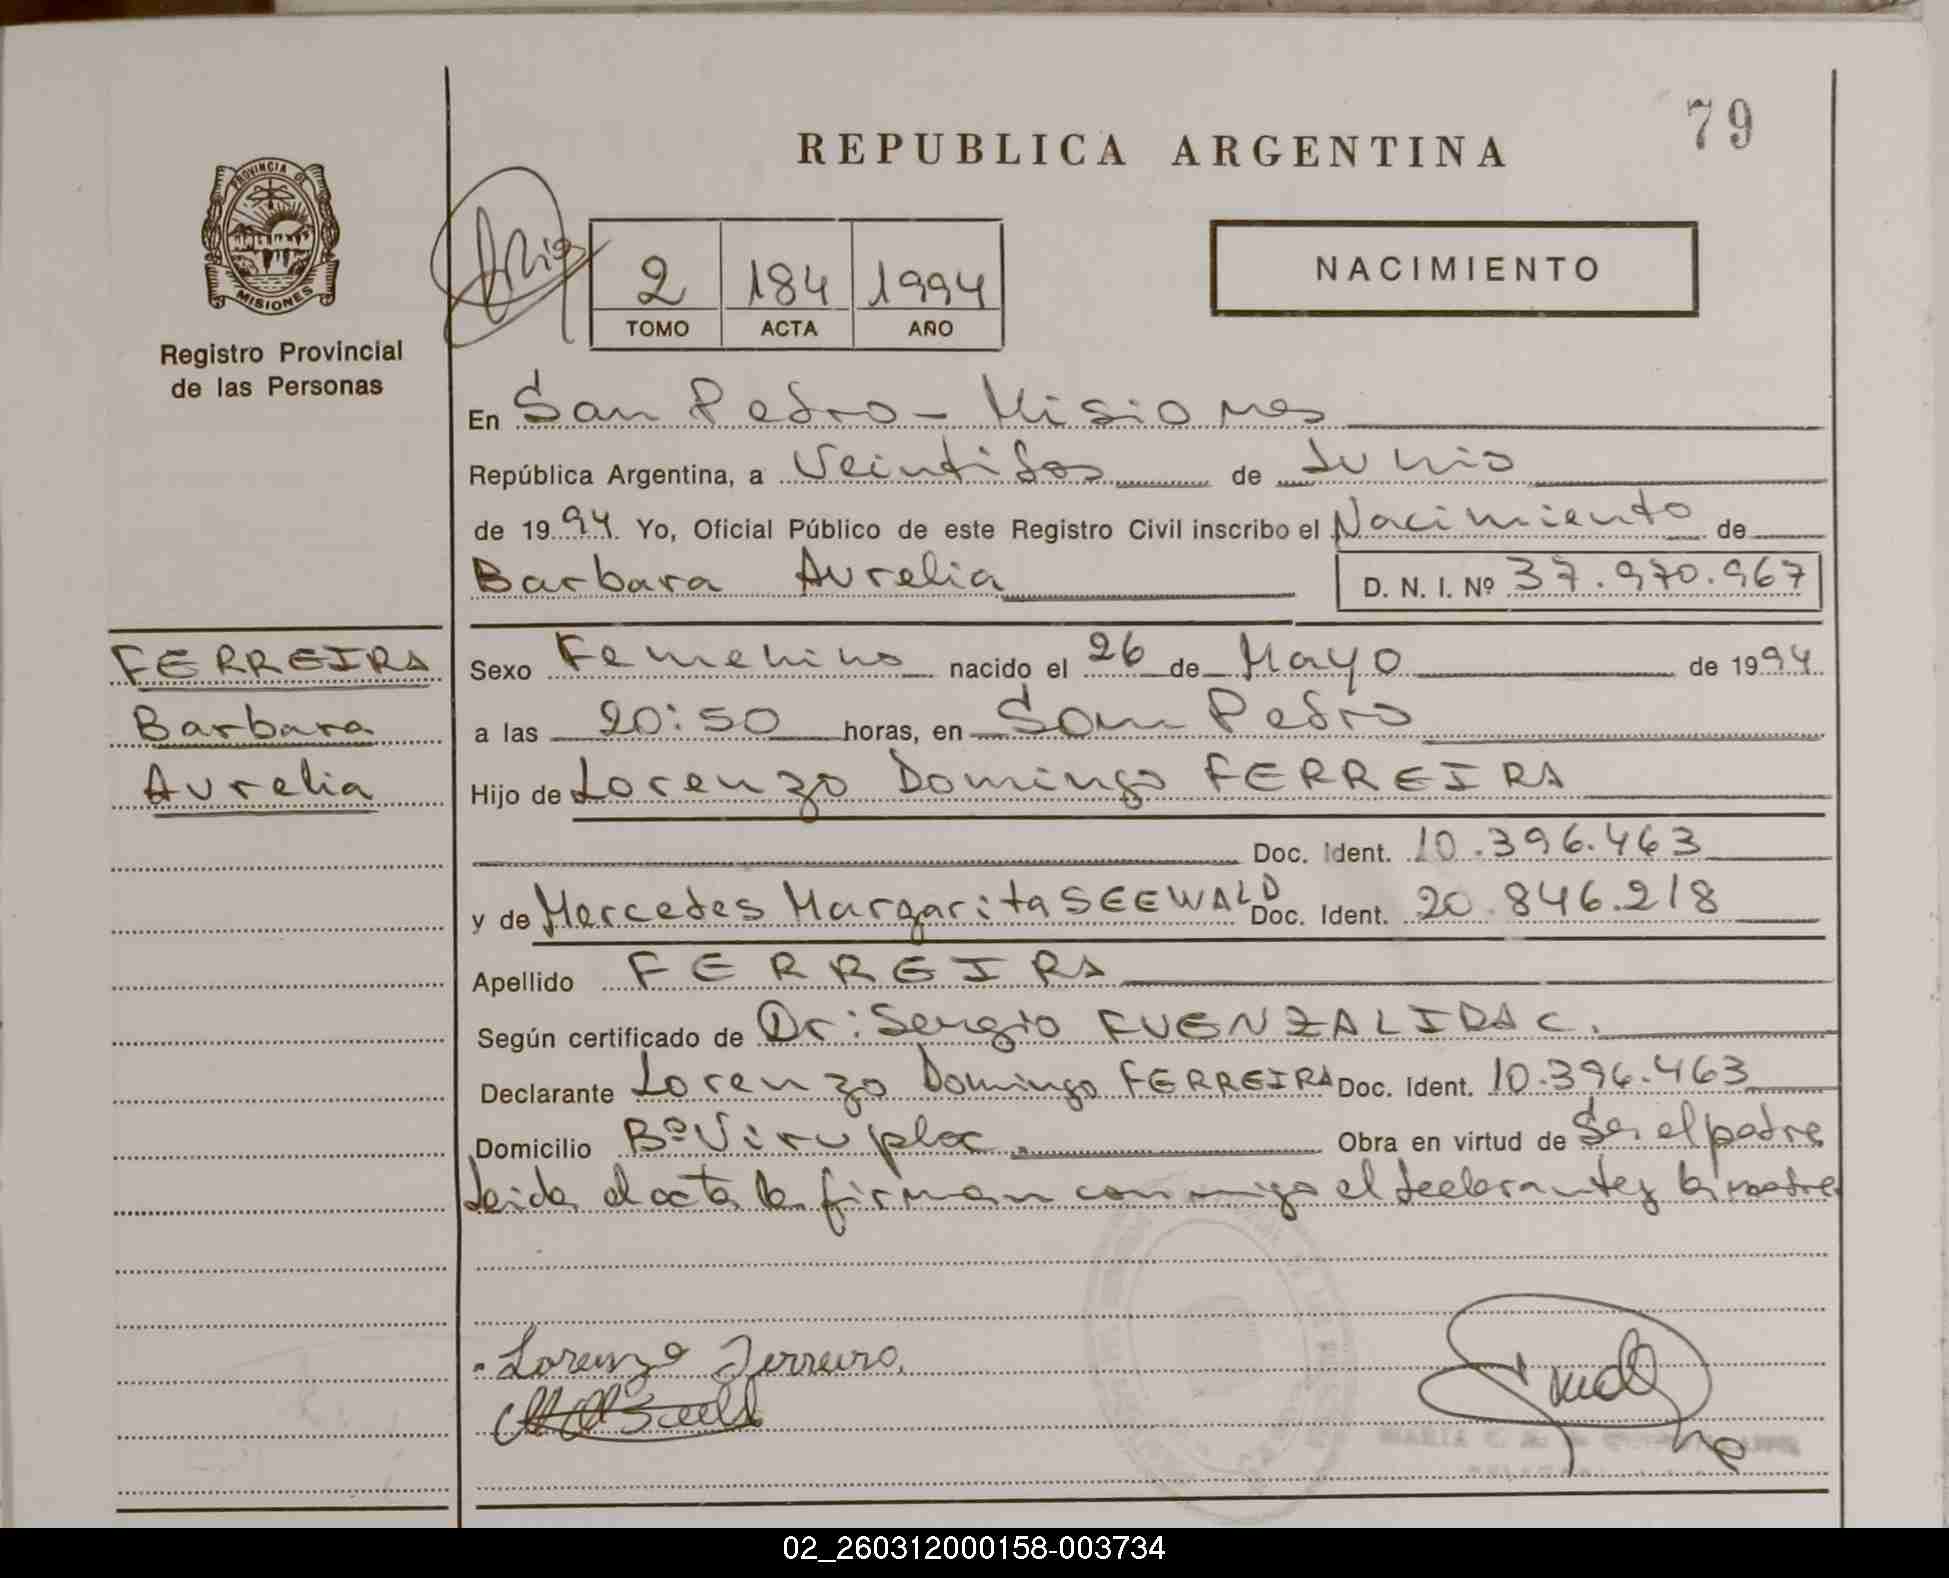 79
REPUBLICA ARGENTINA
PROVINCIA DE
MISIONES
Registro Provincial
de las Personas
2 184 1994
TOMO ACTA AÑO
NACIMIENTO
En San Pedro - Misiones
República Argentina, a Veintidos de Junio
de 1994 Yo, Oficial Público de este Registro Civil inscribo el Nacimiento de
Barbara Aurelia D. N. I. Nº 37.970.967
FERREIRA
Barbara
Aurelia
Sexo Femenino nacido el 26 de Mayo de 1994
a las 20:50 horas, en San Pedro
Hijo de Lorenzo Domingo FERREIRA
Doc. Ident. 10.396.463
y de Mercedes Margarita SEEWALD Doc. Ident. 20.846.218
Apellido FERREIRA
Según certificado de Dr: Sergio FUENZALIDA C.
Declarante Lorenzo Domingo FERREIRA Doc. Ident. 10.396.463
Domicilio Bº Obra en virtud de Ser el padre
Leida el acta la firman conmigo el declarante y la madre
Lorenzo Ferreira
02_260312000158-003734